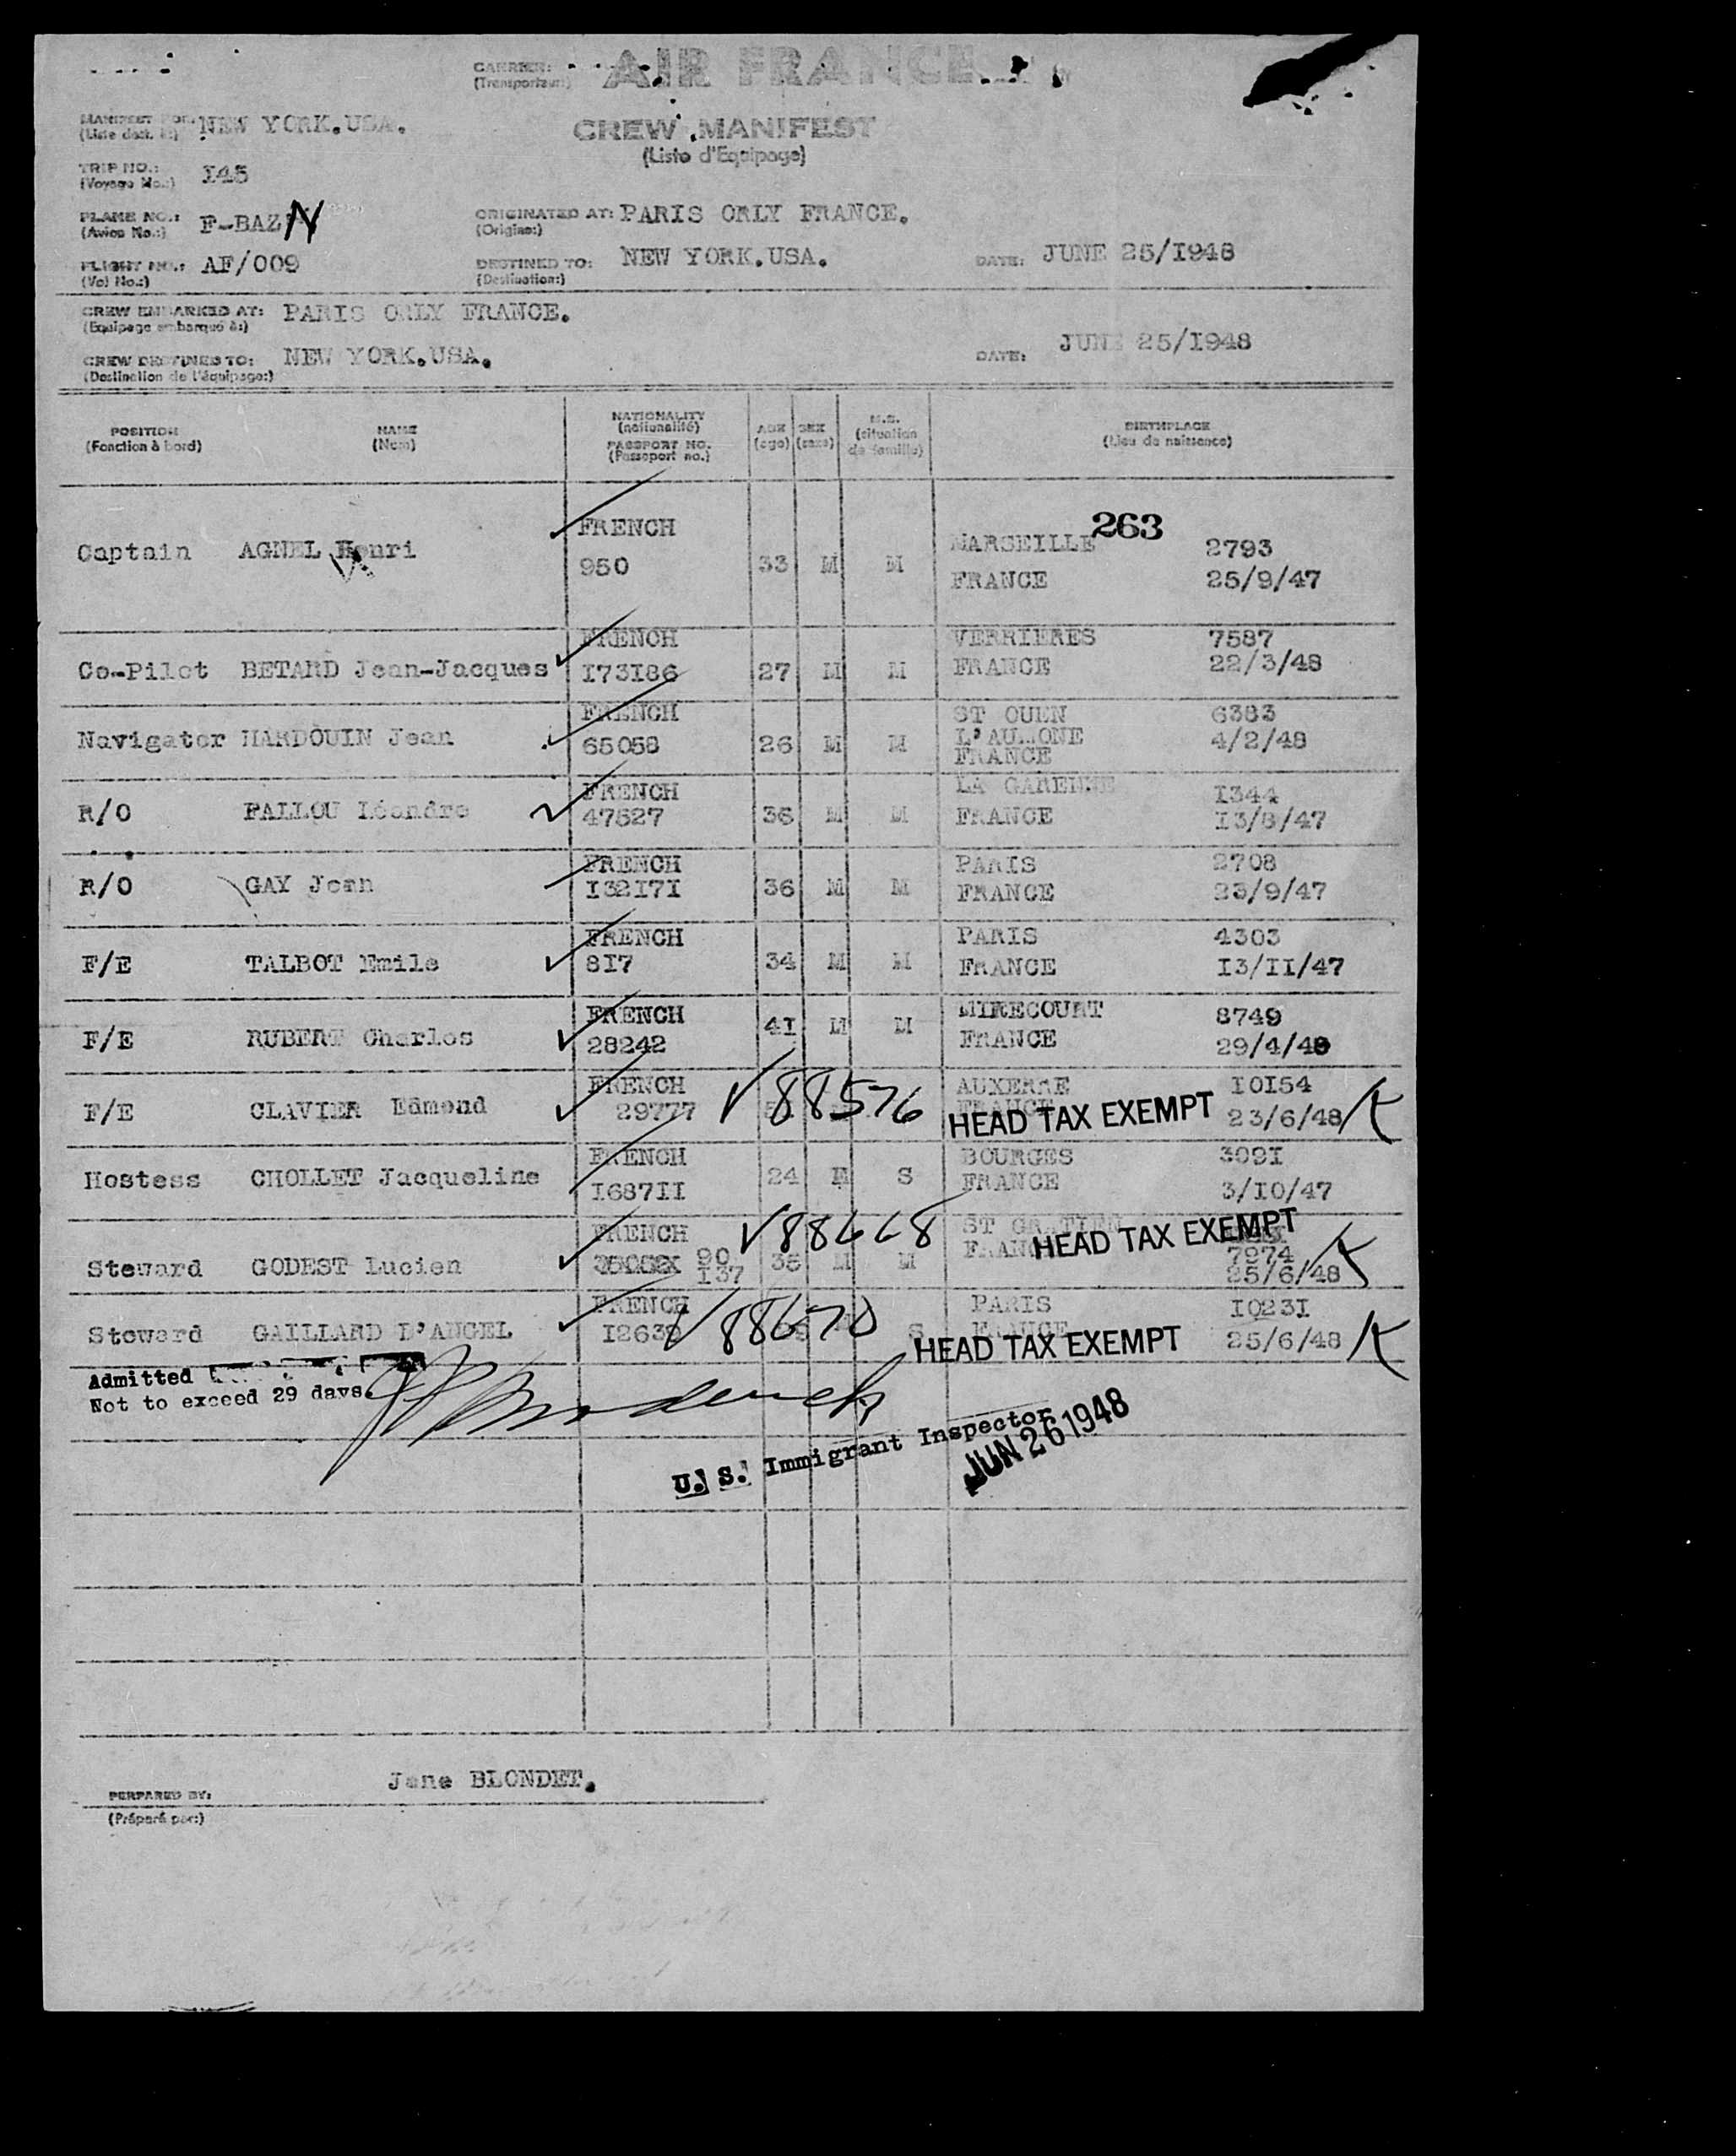 CARRIER: AIR FRANCE
(Transporteur:)
MANIFEST FOR: NEW YORK.USA.
(Liste dest. à:)
CREW MANIFEST
(Liste d'Equipage)
TRIP NO.: I45
(Voyage No.:)
PLANE NO.: F-BAZN
(Avion No.:)
ORIGINATED AT: PARIS ORLY FRANCE.
(Origine:)
FLIGHT NO.: AF/009
(Vol No.:)
DESTINED TO: NEW YORK.USA.
(Destination:)
DATE: JUNE 25/I948
CREW EMBARKED AT: PARIS ORLY FRANCE.
(Equipage embarqué à:)
CREW DESTINED TO: NEW YORK.USA.
(Destination de l'équipage:)
DATE: JUNE 25/I948
POSITION
(Fonction à bord)
NAME
(Nom)
NATIONALITY
(nationalité)
PASSPORT NO.
(Passeport no.)
AGE
(age)
SEX
(sexe)
M.S.
(situation
de famille)
BIRTHPLACE
(Lieu de naissance)
263
Captain AGNEL Henri FRENCH 950 33 M M MARSEILLE FRANCE 2793 25/9/47
Co-Pilot BETARD Jean-Jacques FRENCH I73I86 27 M M VERRIERES FRANCE 7587 22/3/48
Navigator HARDOUIN Jean FRENCH 65058 26 M M ST OUEN L'AUMONE FRANCE 6383 4/2/48
R/O PALLOU Léandre FRENCH 47527 36 M M LA GARENNE FRANCE I344 I3/8/47
R/O GAY Jean FRENCH I32I7I 36 M M PARIS FRANCE 2708 23/9/47
F/E TALBOT Emile FRENCH 8I7 34 M M PARIS FRANCE 4303 I3/II/47
F/E RUBERT Charles FRENCH 28242 4I M M MIRECOURT FRANCE 8749 29/4/48
F/E CLAVIER Edmond FRENCH 29777 V88576 AUXERRE FRANCE HEAD TAX EXEMPT I0I54 23/6/48
Hostess CHOLLET Jacqueline FRENCH I687II 24 F S BOURGES FRANCE 309I 3/I0/47
Steward GODEST Lucien FRENCH 90 I37 V88668 35 M M ST GRATIEN FRANCE HEAD TAX EXEMPT 7974 25/6/48
Steward GAILLARD D'ANGEL FRENCH V88670 S PARIS FRANCE HEAD TAX EXEMPT I023I 25/6/48
Admitted
Not to exceed 29 days.
U. S. Immigrant Inspector
JUN 26 1948
PERPARED BY: Jane BLONDET.
(Préparé par:)